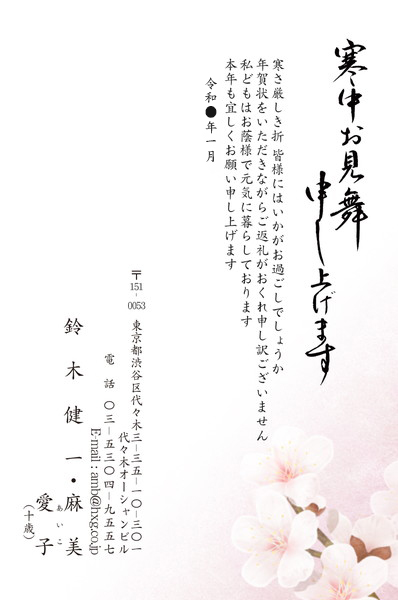 寒中お見舞
申し上げます
寒さ厳しき折 皆様にはいかがお過ごしでしょうか
年賀状をいただきながらご返礼がおくれ申し訳ございません
私どもはお蔭様で元気に暮らしております
本年も宜しくお願い申し上げます
令和●年一月
〒151-0053 東京都渋谷区代々木三-三五-一〇-三〇一
代々木オーシャンビル
電話 〇三-五三〇四-九五五七
E-mail : amb@hxg.co.jp
鈴木健一・麻美
愛子
あいこ
(十歳)